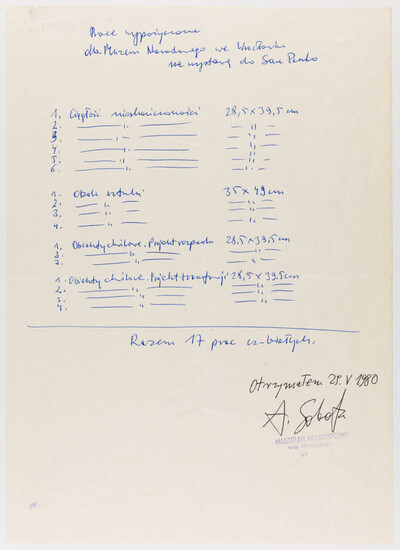 Prace wypożyczone
dla Muzeum Narodowego we Wrocławiu
na wystawę do San Paulo
1. Ciągłość nieskończoności 28,5 x 39,5 cm
2. —— " —— — " —
3. —— " —— — " —
4. —— " —— — " —
5. —— " —— — " —
6. —— " —— — " —
1. Obok sztuki 35 x 49 cm
2. —— " —— — " —
3. —— " —— — " —
4. —— " —— — " —
1. Obiekty chwilowe. Projekt rozpadu 28,5 x 39,5 cm
2. —— " —— — " —
3. —— " —— — " —
1. Obiekty chwilowe. Projekt transfuzji 28,5 x 39,5 cm
2. —— " —— — " —
3. —— " —— — " —
4. —— " —— — " —
Razem 17 prac cz-białych.
Otrzymałem 29.V 1980
A. Sobota
MUZEUM NARODOWE